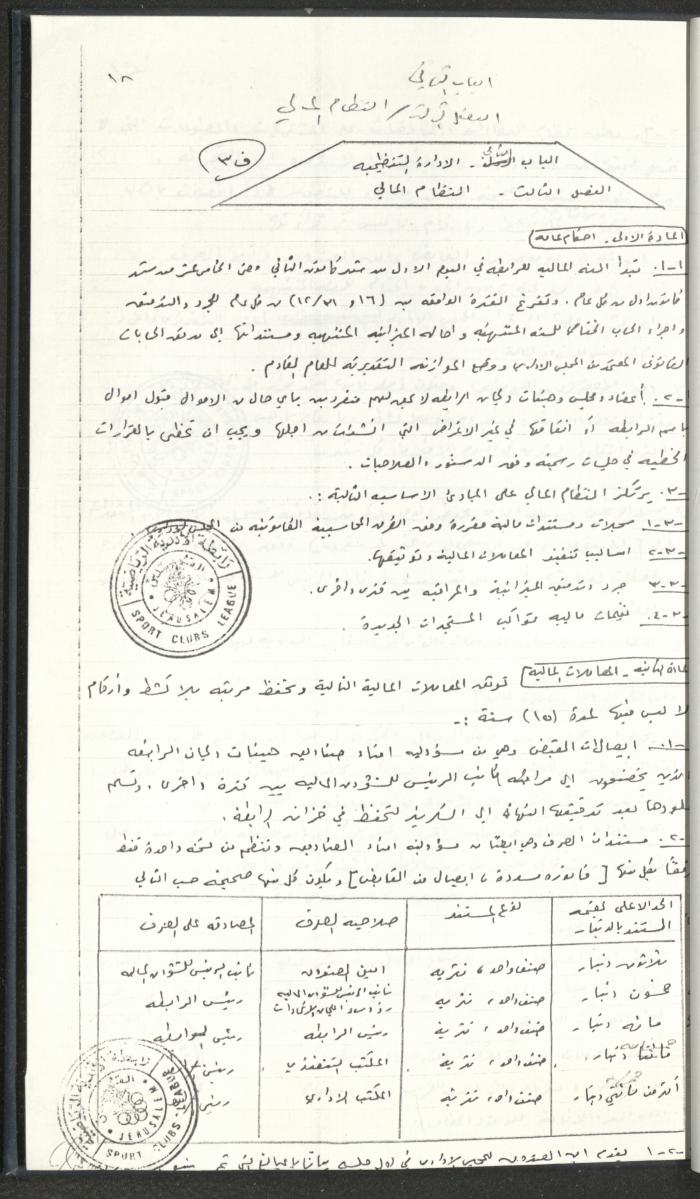 ١٨
الباب الثاني
الفصل الثالث / النظام المالي
ف٣
الباب الثاني - الادارة التنظيمية
الفصل الثالث - النظام المالي
المادة الاولى - احكام عامة
١-١. تبدأ السنة المالية للرابطة في اليوم الاول من شهر كانون الثاني وحتى الحادي والثلاثين من شهر
كانون اول من كل عام. وتفرغ الفترة الواقعة بين (١٦ و ١٢/٣١) من كل عام للجرد والتدقيق
واجراء الحساب الختامي للسنة المنتهية واحالة الميزانية المنتهية ومستنداتها الى مدقق الحسابات
القانوني المعتمد من المجلس الاداري ووضع الموازنة التقديرية للعام القادم.
١-٢. أعضاء ومجلس وهيئات ولجان الرابطة لا يحق لهم منفردين بأي حال من الاحوال قبول اموال
باسم الرابطة أو انفاقها في غير الاغراض التي انشئت من اجلها ويجب ان تحظى بالقرارات
الخطية في جلسات رسمية وفق الدستور والصلاحيات.
-٣. يرتكز النظام المالي على المبادئ الاساسية التالية :.
-٣-١ سجلات ومستندات مالية مقررة وفق الطرق المحاسبية القانونية من المجلس الاداري
-٣-٢ اساليب تنفيذ المعاملات المالية وتوثيقها.
-٣-٣ جرد وتدقيق الميزانية والمراقبة بين فترة واخرى.
-٣-٤ تعليمات مالية تواكب المستجدات الجديدة.
رابطة الاندية الرياضية
القدس
JERUSALEM
SPORT CLUBS LEAGUE
المادة الثانية - المعاملات المالية توثق المعاملات المالية التالية وتحفظ مرتبة بلا كشط وأرقام
لا لبس فيها لمدة (١٥) سنة :-
-١. ايصالات القبض وهي من مسؤولية امناء صناديق هيئات ولجان الرابطة
الذين يخضعون الى مراجعة نائب الرئيس للشؤون المالية بين فترة واخرى. وتسلم
جلودها بعد تدقيقها النهائي الى السكرتير لتحفظ في خزائن الرابطة.
-٢. مستندات الصرف وهي ايضا من مسؤولية امناء الصناديق وتنظم من نسخة واحدة فقط
مرفقا بكل منها [فاتورة مسددة، ايصال من القابض] وتكون كل منها صحيحة حسب التالي
الحد الاعلى لقيمة المستند بالدينار | نوع المستند | صلاحية الصرف | المصادقة على الصرف
ثلاثون دينار | صنف واحد، نثرية | امين الصندوق | نائب الرئيس للشؤون المالية
خمسون دينار | صنف واحد، نثرية | نائب الرئيس للشؤون المالية رؤوساء اللجان والاتحادات | رئيس الرابطة
مائة دينار | صنف واحد، نثرية | رئيس الرابطة | رئيس الرابطة
دينار | صنف واحد، نثرية | المكتب التنفيذي | رئيس
أكثر من دينار | صنف واحد، نثرية | المكتب الاداري | رئيس
رابطة الاندية الرياضية
القدس
JERUSALEM
SPORT CLUBS LEAGUE
-٢-١ يقدم امين الصندوق للمجلس الاداري في اول جلسة